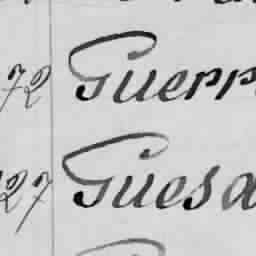 72 Guerr
127 Guesd